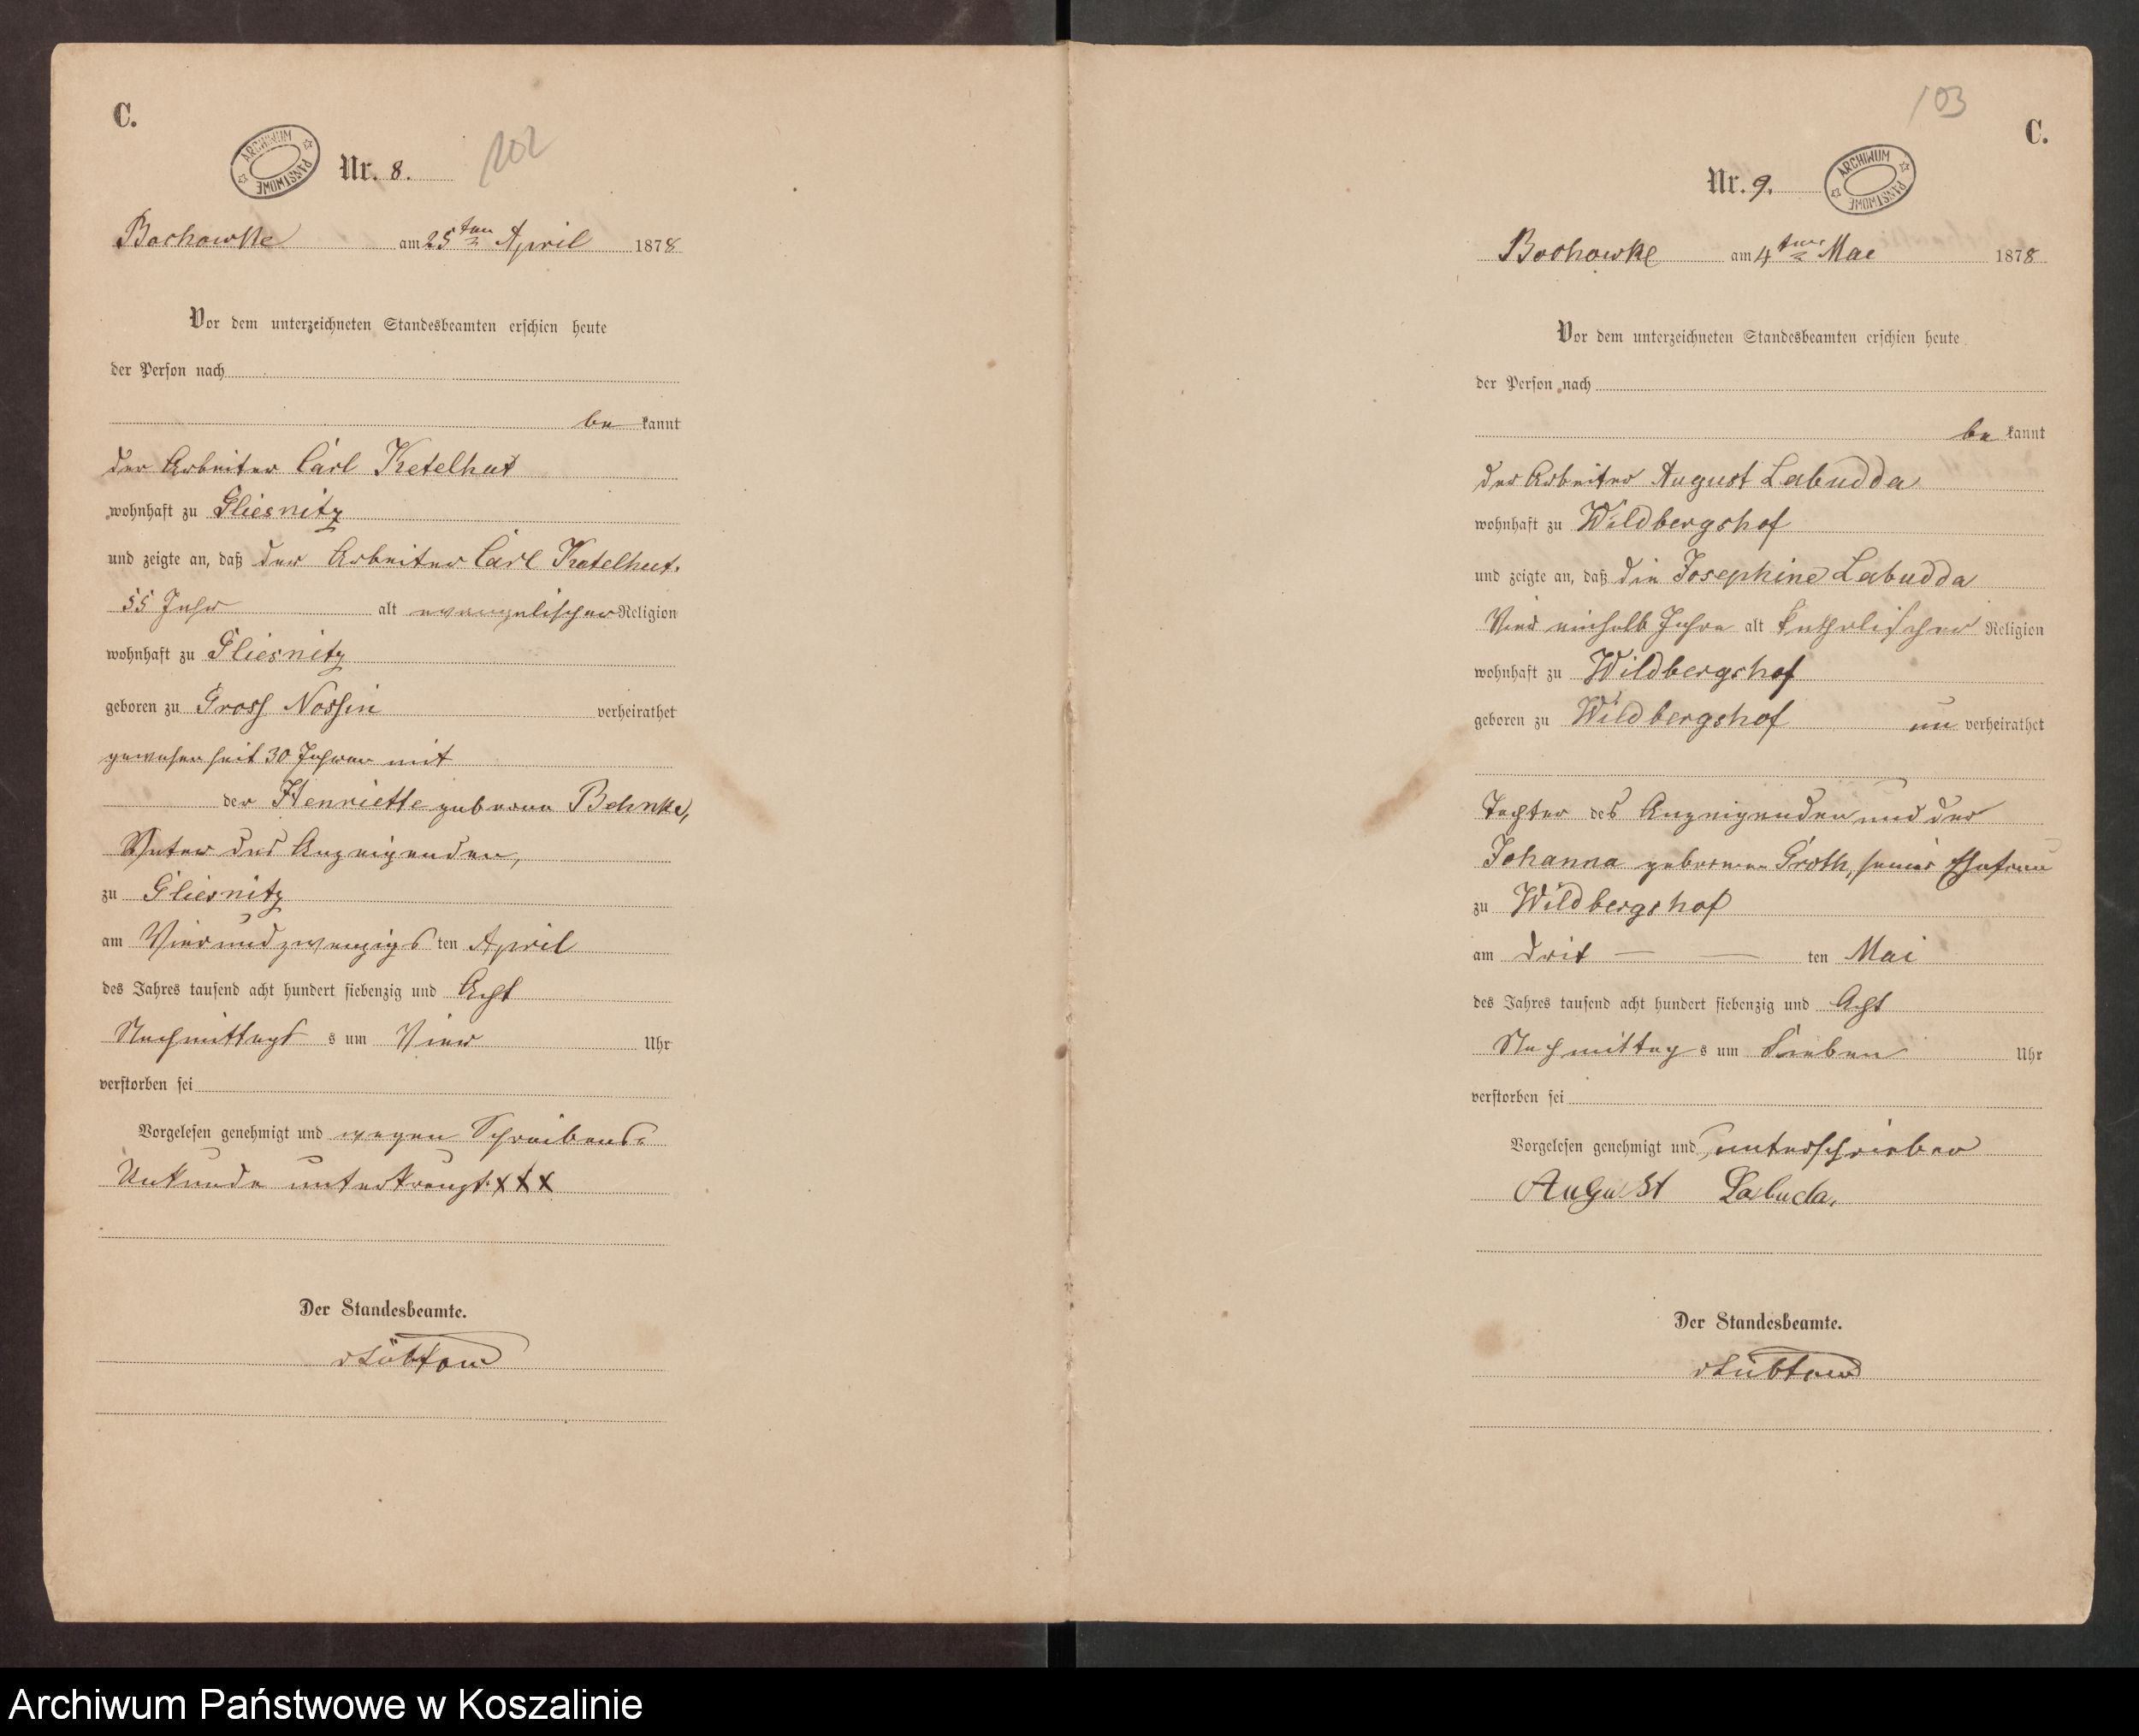 C.
ARCHIWUM PAŃSTWOWE
Nr. 8.
202
Bochowke am 25ten April 1878
Vor dem unterzeichneten Standesbeamten erschien heute
der Person nach
be kannt
der Arbeiter Carl Ketelhut
wohnhaft zu Gliesnitz
und zeigte an, daß der Arbeiter Carl Ketelhut.
55 Jahr alt evangelischer Religion
wohnhaft zu Gliesnitz
geboren zu Gross Nossin verheirathet
gewesen seit 30 Jahren mit
der Henriette geborne Behnke,
Vater des Anzeigenden,
zu Gliesnitz
am Vierundzwanzigs ten April
des Jahres tausend acht hundert siebenzig und Acht
Nachmittags s um Vier Uhr
verstorben sei
Vorgelesen genehmigt und wegen Schreibens-
Unkunde unterkreuzt. XXX
Der Standesbeamte.
vLübtow
103
C.
Nr. 9.
ARCHIWUM PAŃSTWOWE
Bochowke am 4ten Mai 1878
Vor dem unterzeichneten Standesbeamten erschien heute
der Person nach
be kannt
der Arbeiter August Labudda
wohnhaft zu Wildbergshof
und zeigte an, daß die Josephine Labudda
Vier einhalb Jahre alt katholischer Religion
wohnhaft zu Wildbergshof
geboren zu Wildbergshof un verheirathet
Tochter des Anzeigenden und der
Johanna gebornen Groth, seiner Ehefrau
zu Wildbergshof
am drit — — ten Mai
des Jahres tausend acht hundert siebenzig und Acht
Nachmittag s um Sieben Uhr
verstorben sei
Vorgelesen genehmigt und unterschrieben
August Labuda.
Der Standesbeamte.
vLübtow
Archiwum Państwowe w Koszalinie